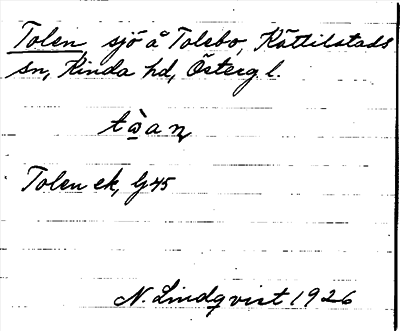 Tolen, sjö å Tolebo, Kättilstads
sn, Kinda hd, Östergl.
Tolen ek, G 45
N. Lindqvist 1926